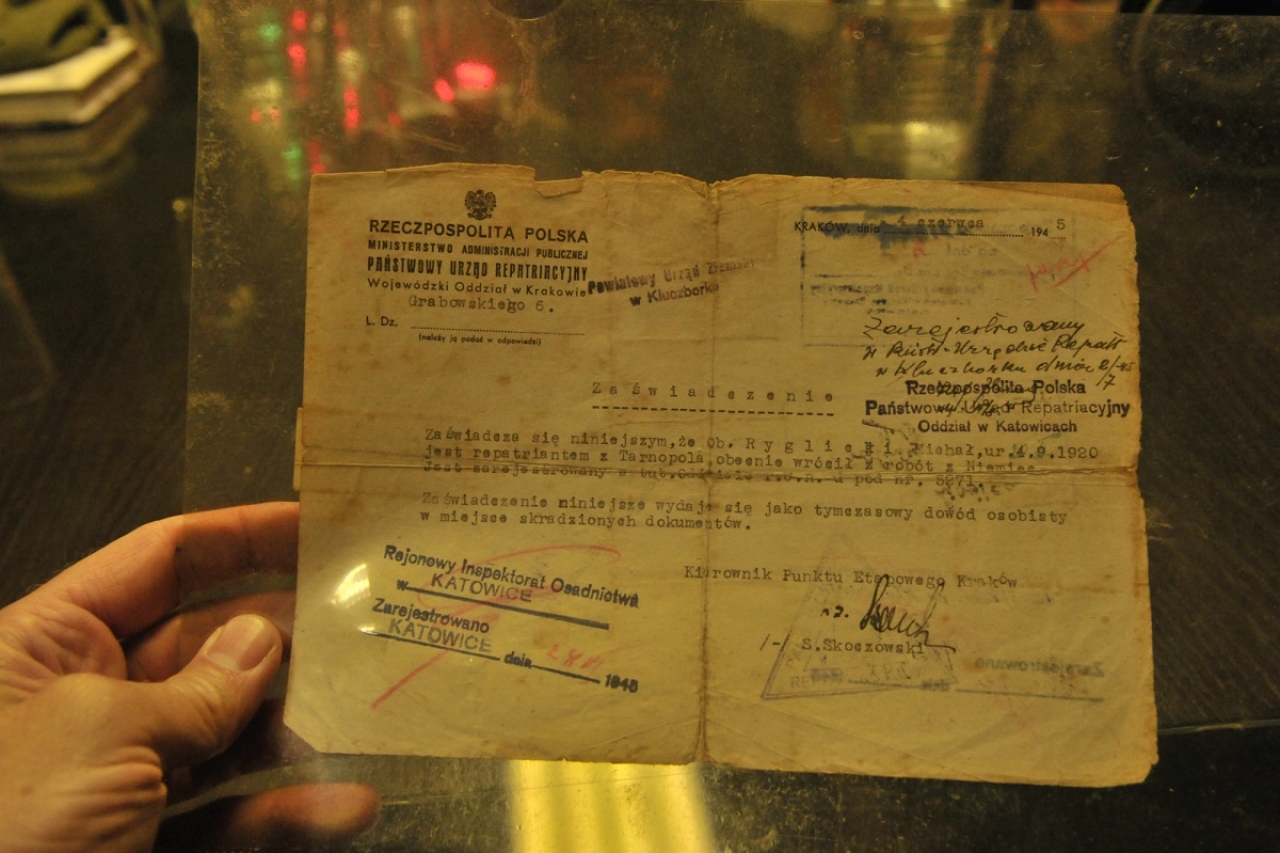 RZECZPOSPOLITA POLSKA
MINISTERSTWO ADMINISTRACJI PUBLICZNEJ
PAŃSTWOWY URZĄD REPATRIACYJNY
Wojewódzki Oddział w Krakowie
Grabowskiego 6.
L. Dz.
(należy ją podać w odpowiedzi)
Powiatowy Urząd Ziemski
w Kluczborku
KRAKÓW, dnia 4 czerwca 1945
Zarejestrowany
w Państ. Urzędzie Repatr
w Kluczborku dnia 2/7 45
Rzeczpospolita Polska
Państwowy Urząd Repatriacyjny
Oddział w Katowicach
Zaświadczenie
Zaświadcza się niniejszym, że Ob. Ryglicki Michał, ur. 4.9.1920
jest repatriantem z Tarnopola, obecnie wrócił z robót z Niemiec.
Jest zarejestrowany w tut. P.U.R. pod nr. 5271
Zaświadczenie niniejsze wydaje się jako tymczasowy dowód osobisty
w miejsce skradzionych dokumentów.
Rejonowy Inspektorat Osadnictwa
w KATOWICE
Zarejestrowano
KATOWICE dnia 1945
Kierownik Punktu Etapowego Kraków
/-/ S.Skoczowski
Zarejestrowano